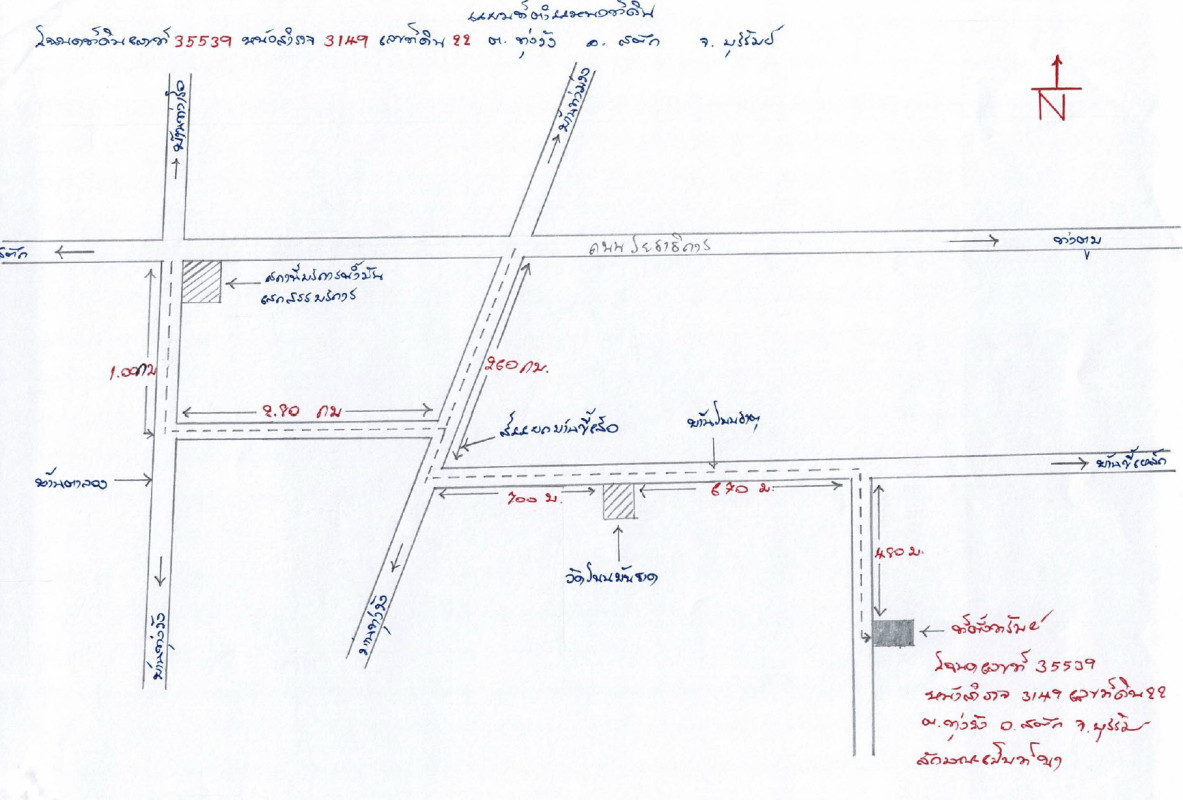 แผนที่ตำแหน่งที่ดิน
โฉนดที่ดินเลขที่ 35539 หน้าสำรวจ 3149 เลขที่ดิน 22 ต. ทุ่งวัง อ. สตึก จ. บุรีรัมย์
N
บ้านท่าเรือ
บ้านท่าม่วง
สตึก
ถนนโยธาธิการ
ท่าตูม
สถานีบริการน้ำมัน
บริการ
1.00กม
260 กม.
2.90 กม
สี่แยกบ้านขี้เสือ
บ้านขี้เหล็ก
บ้านตาลอง
700 ม.
670 ม.
480 ม.
ที่ตั้งทรัพย์
โฉนดเลขที่ 35539
หน้าสำรวจ 3149 เลขที่ดิน 22
ต.ทุ่งวัง อ.สตึก จ.บุรีรัม
ลักษณะเป็นที่นา
บ้านทุ่งวัง
บ้านทุ่งวัง